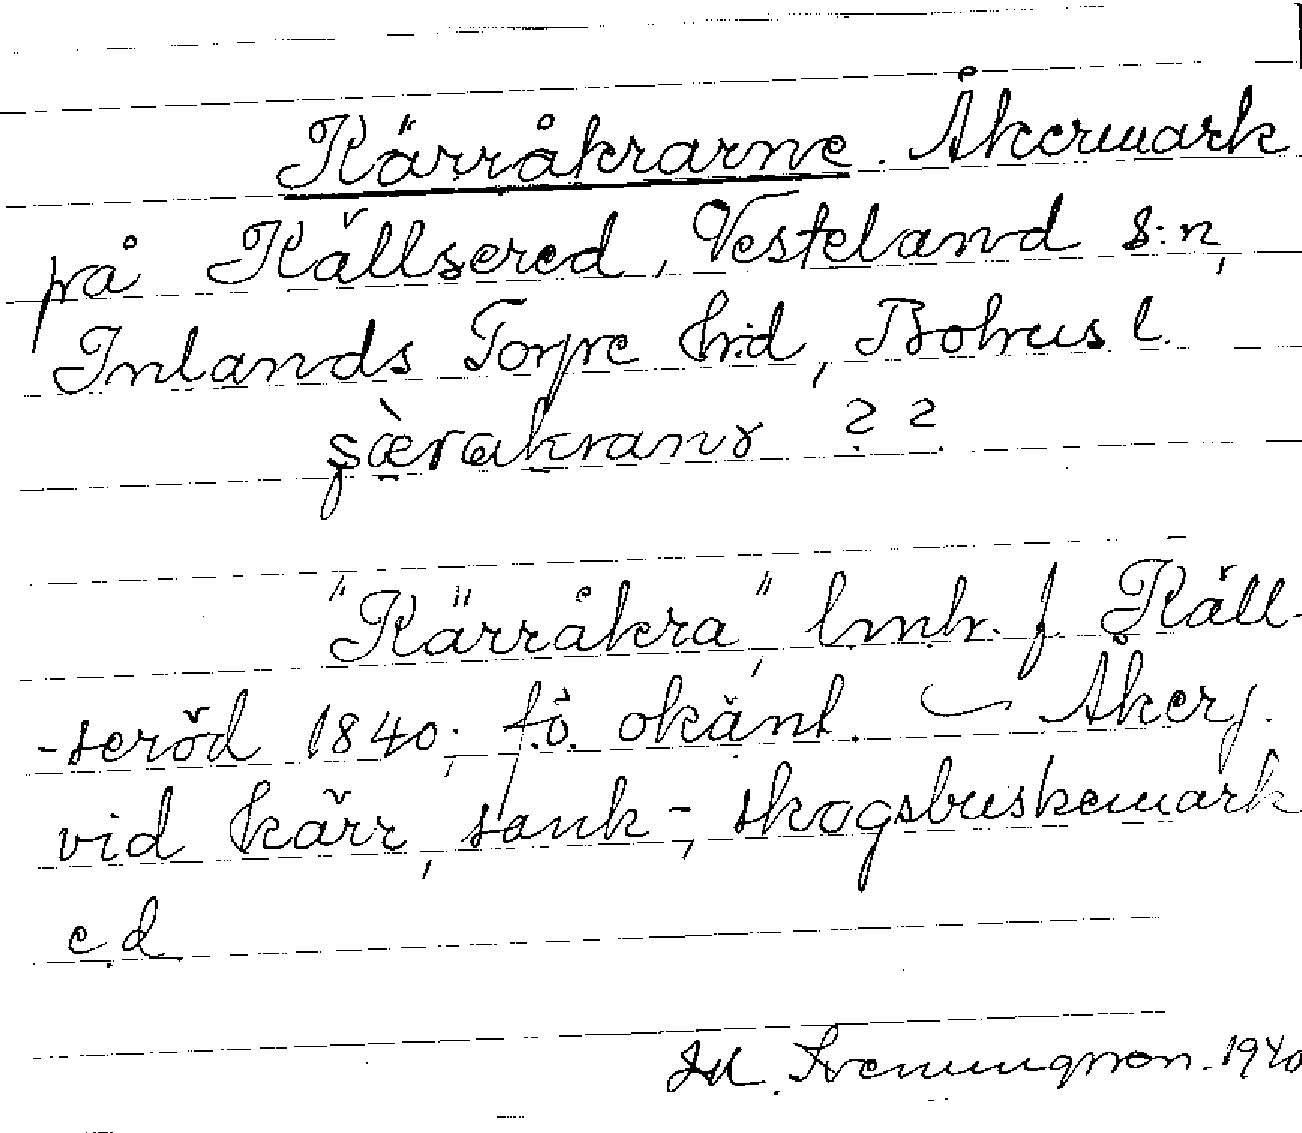 Kärråkrarne. Åkermark
på Källsered, Vesteland s:n,
Inlands Torpe hrd, Bohus l.
särakranɤ ? ?
"Kärråkra", lmh. f. Käll-
-seröd 1840; f.ö. okänt. — Åkerj.
vid kärr, sank-, skogsbuskemark
e d
Svenungsson. 1940